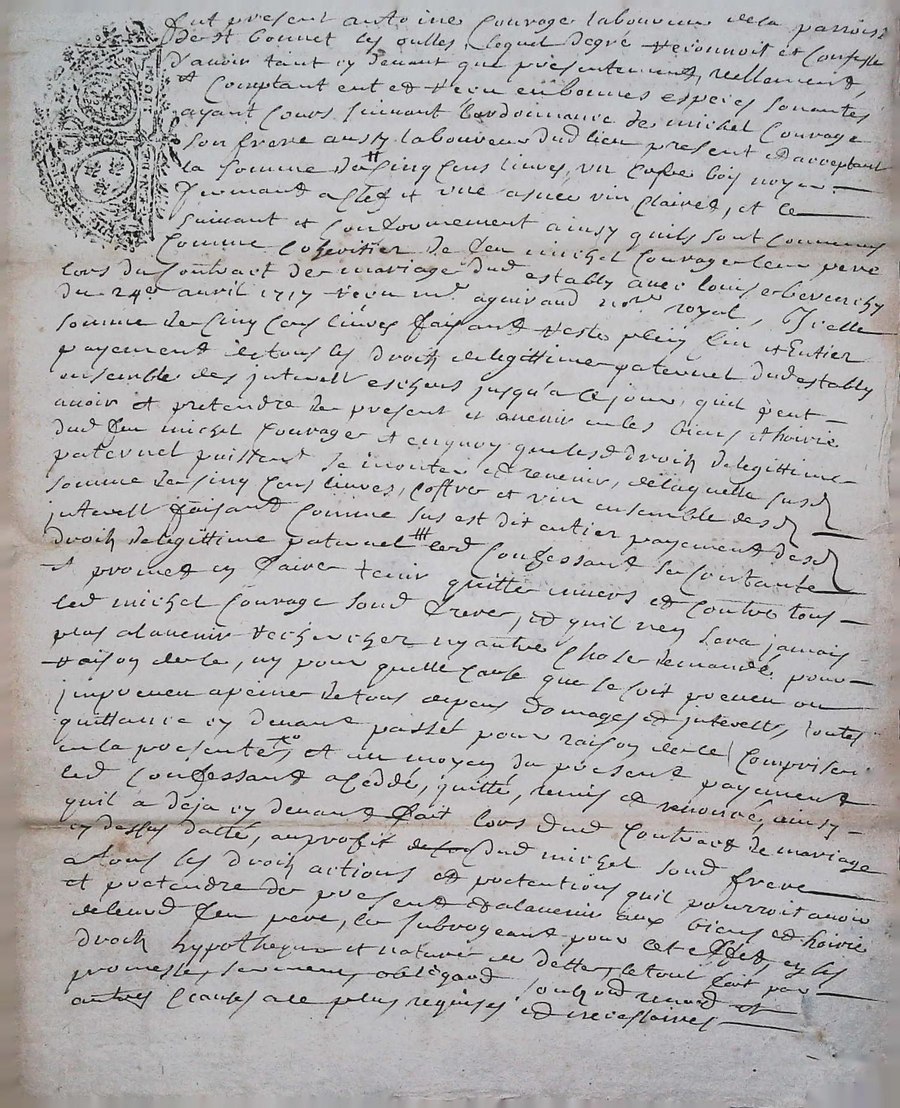 fut present antoine Couvage laboureur de la parroisse
de st bonnet les oulles, lequel degré reconnoit et Confesse
d'avoir tant cy devant que presentement, reellement,
et Comptant eut et receu en bonnes especes sonantes
ayant cours suivant l'ordonnance de michel Couvage
son frere aussy laboureur dud lieu present et acceptant
la somme de Cinq Cens livres, un Cofre bois noyer
fermant a clef et une asnee vin clairet, et ce
suivant et Conformement ainsy quils sont Convenus
Comme Coheritier de feu michel Couvage leur pere
lors du Contract de mariage dud estably avec louise
du 24e avril 1717 receu me agniraud nore royal, Icelle
somme de Cinq Cens livres faisant reste plein fin et Entier
payement de tous les droits de legittime paternel dud estably
ensemble des interests escheus jusqu'a ce jour, quil peut
avoir et pretendre de present et avenir en les biens et hoirie
dud feu michel Couvage et enquoy que lesd droits de legittime
paternel puissent se monter et revenir, de laquelle susd
somme de Cinq Cens livres, coffre et vin ensemble desd
interests faisant Comme sus est dit entier payement desd
droits de legittime paternel led Confessant se Contante
et promet en faire tenir quitte envers et Contre tous
led michel Couvage sond frere, et quil n'en sera jamais
plus a l'avenir recherché ny autre Chose demandé, pour
raison de ce, ny pour quelle cause que ce soit preveu ou
inpreveu a peine de tous depens domages et interests, toutes
quittance cy devant passée pour raison de ce Comprises
en la presente, et au moyen du present payement
led Confessant a Ceddé, quitté, remis et renoncé, ainsy
quil a deja cy devant fait lors dud Contract de mariage
cy dessus datté, au profit dud michel sond frere
a tous les droits actions et pretentions quil pourroit avoir
et pretendre de present et a l'avenir aux biens et hoirie
de leurd feu pere, le subrogeant pour cet effet, en les
droits hypotheque et nature de dette, le tout fait par
promesse, serment, obligaon soubzon renond et
autres Clauses a ce plus requises et necessaires